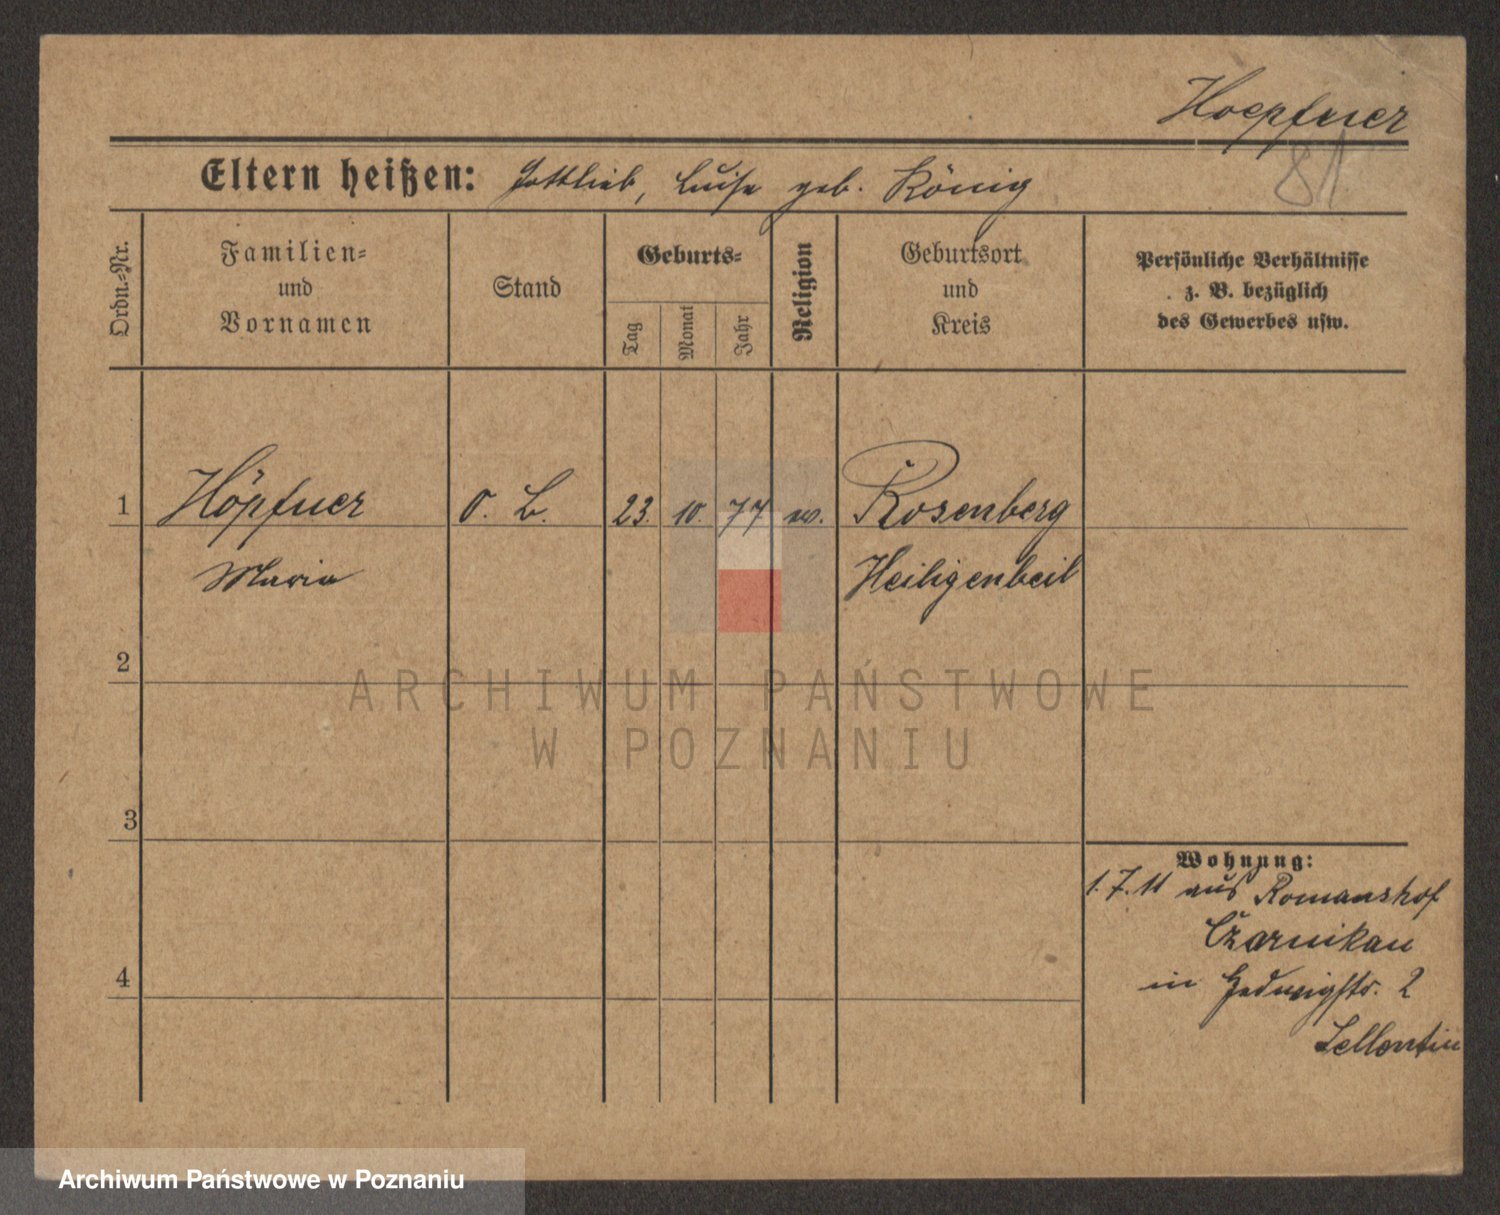 Hoepfner
81
Eltern heißen: Gottlieb, Luise geb. König
Ordn.-Nr.
Familien-
und
Vornamen
Stand
Geburts-
Tag
Monat
Jahr
Religion
Geburtsort
und
Kreis
Persönliche Verhältnisse
z. B. bezüglich
des Gewerbes usw.
1 Höpfner o. B. 23. 10. 77 Rosenberg
Maria Heiligenbeil
2
ARCHIWUM PAŃSTWOWE
W POZNANIU
3
Wohnung:
1.7.11 aus Romanshof
Czarnikau
4
in Hedwigstr. 2
Sellentin
Archiwum Państwowe w Poznaniu